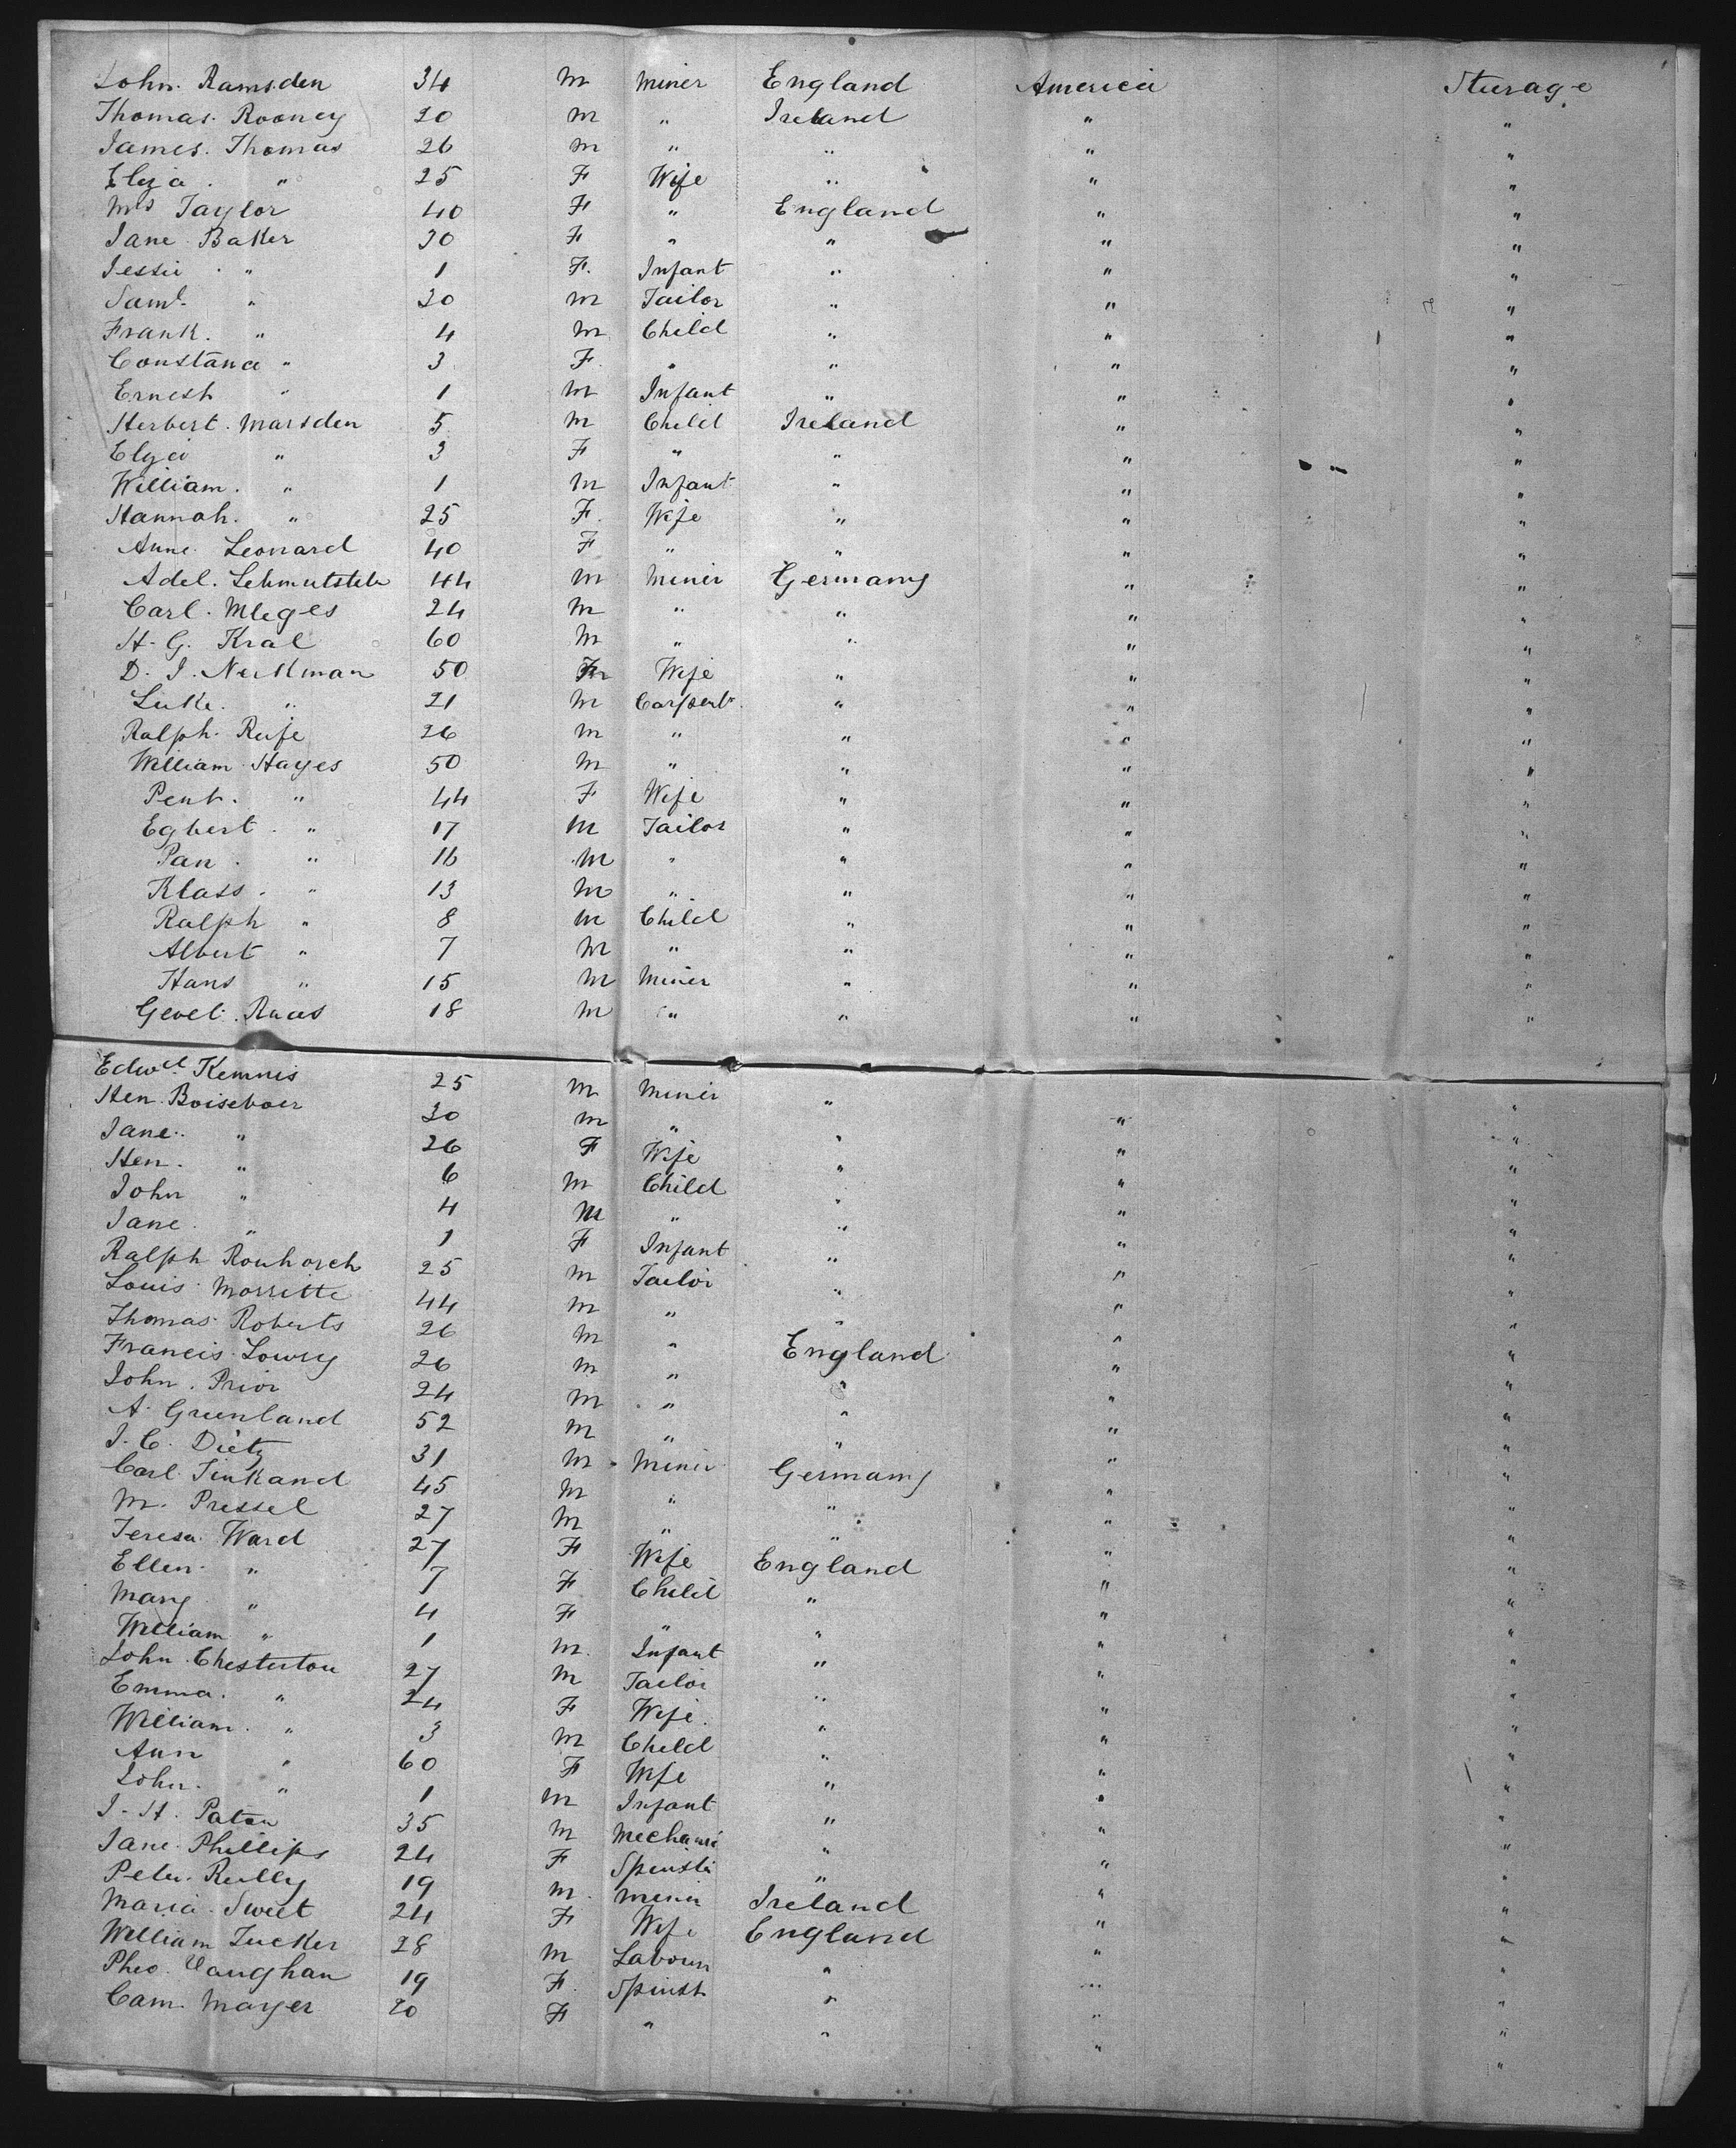 John Ramsden 34 m miner England America Sturage
Thomas Rooney 20 m " Ireland " "
James Thomas 26 m " " " "
Eliza " 25 F Wife " " "
Mrs Taylor 40 F " England " "
Jane Baker 30 F " " " "
Jessie " 1 F. Infant " " "
Saml " 30 m Tailor " " "
Frank. " 4 m Child " " "
Constance " 3 F. " " " "
Ernest " 1 m Infant " " "
Herbert Marsden 5 m Child Ireland " "
Eliza " 3 F " " " "
William. " 1 m Infant " " "
Hannah. " 25 F. Wife " " "
Anne Leonard 40 F " " " "
Adel. 44 m miner Germany " "
Carl. Meges 24 m " " " "
H. G. Kral 60 m " " " "
D. J. Neukman 50 F Wife " " "
Luke. " 21 m Carpentr " " "
Ralph. Reife 26 m " " " "
William Hayes 50 m " " " "
" 44 F Wife " " "
Egbert. " 17 m Tailor " " "
Pan. " 16 m " " " "
Klass. " 13 m " " " "
Ralph " 8 m Child " " "
Albert " 7 m " " " "
Hans " 15 m Miner " " "
18 m " " " "
Edwd Kemnis 25 m Miner " " "
Hen Boiseboer 30 m " " " "
Jane " 26 F Wife " " "
Hen. " 6 m Child " " "
John " 4 m " " " "
Jane. " 1 F Infant " " "
Ralph Rouhorch 25 m Tailor " " "
Louis Morritte 44 m " " " "
Thomas Roberts 26 m " England " "
Francis Lowry 26 m " " " "
John. Prior 24 m " " " "
A. Greenland 52 m " " " "
J. C. Dietz 31 m Miner Germany " "
Carl Tinkand 45 m " " " "
M. Pressel 27 m " " " "
Teresa Ward 27 F Wife England " "
Ellen " 7 F Child " " "
Mary " 4 F " " " "
William " 1 m. Infant " " "
John Chesterton 27 m Tailor " " "
Emma. " 24 F Wife. " " "
William. " 3 m Child " " "
Ann " 60 F Wife " " "
John. " 1 m Infant " " "
J. H. Paton 35 m Mechanic " " "
Jane Phillips 24 F Spinstr " " "
Peter Reilly 19 m. miner Ireland " "
Maria Sweet 24 F Wife England " "
William Tucker 28 m Labourr " " "
Pheo. Vaughan 19 F. Spinst " " "
Cam. Mayer 20 F " " " "